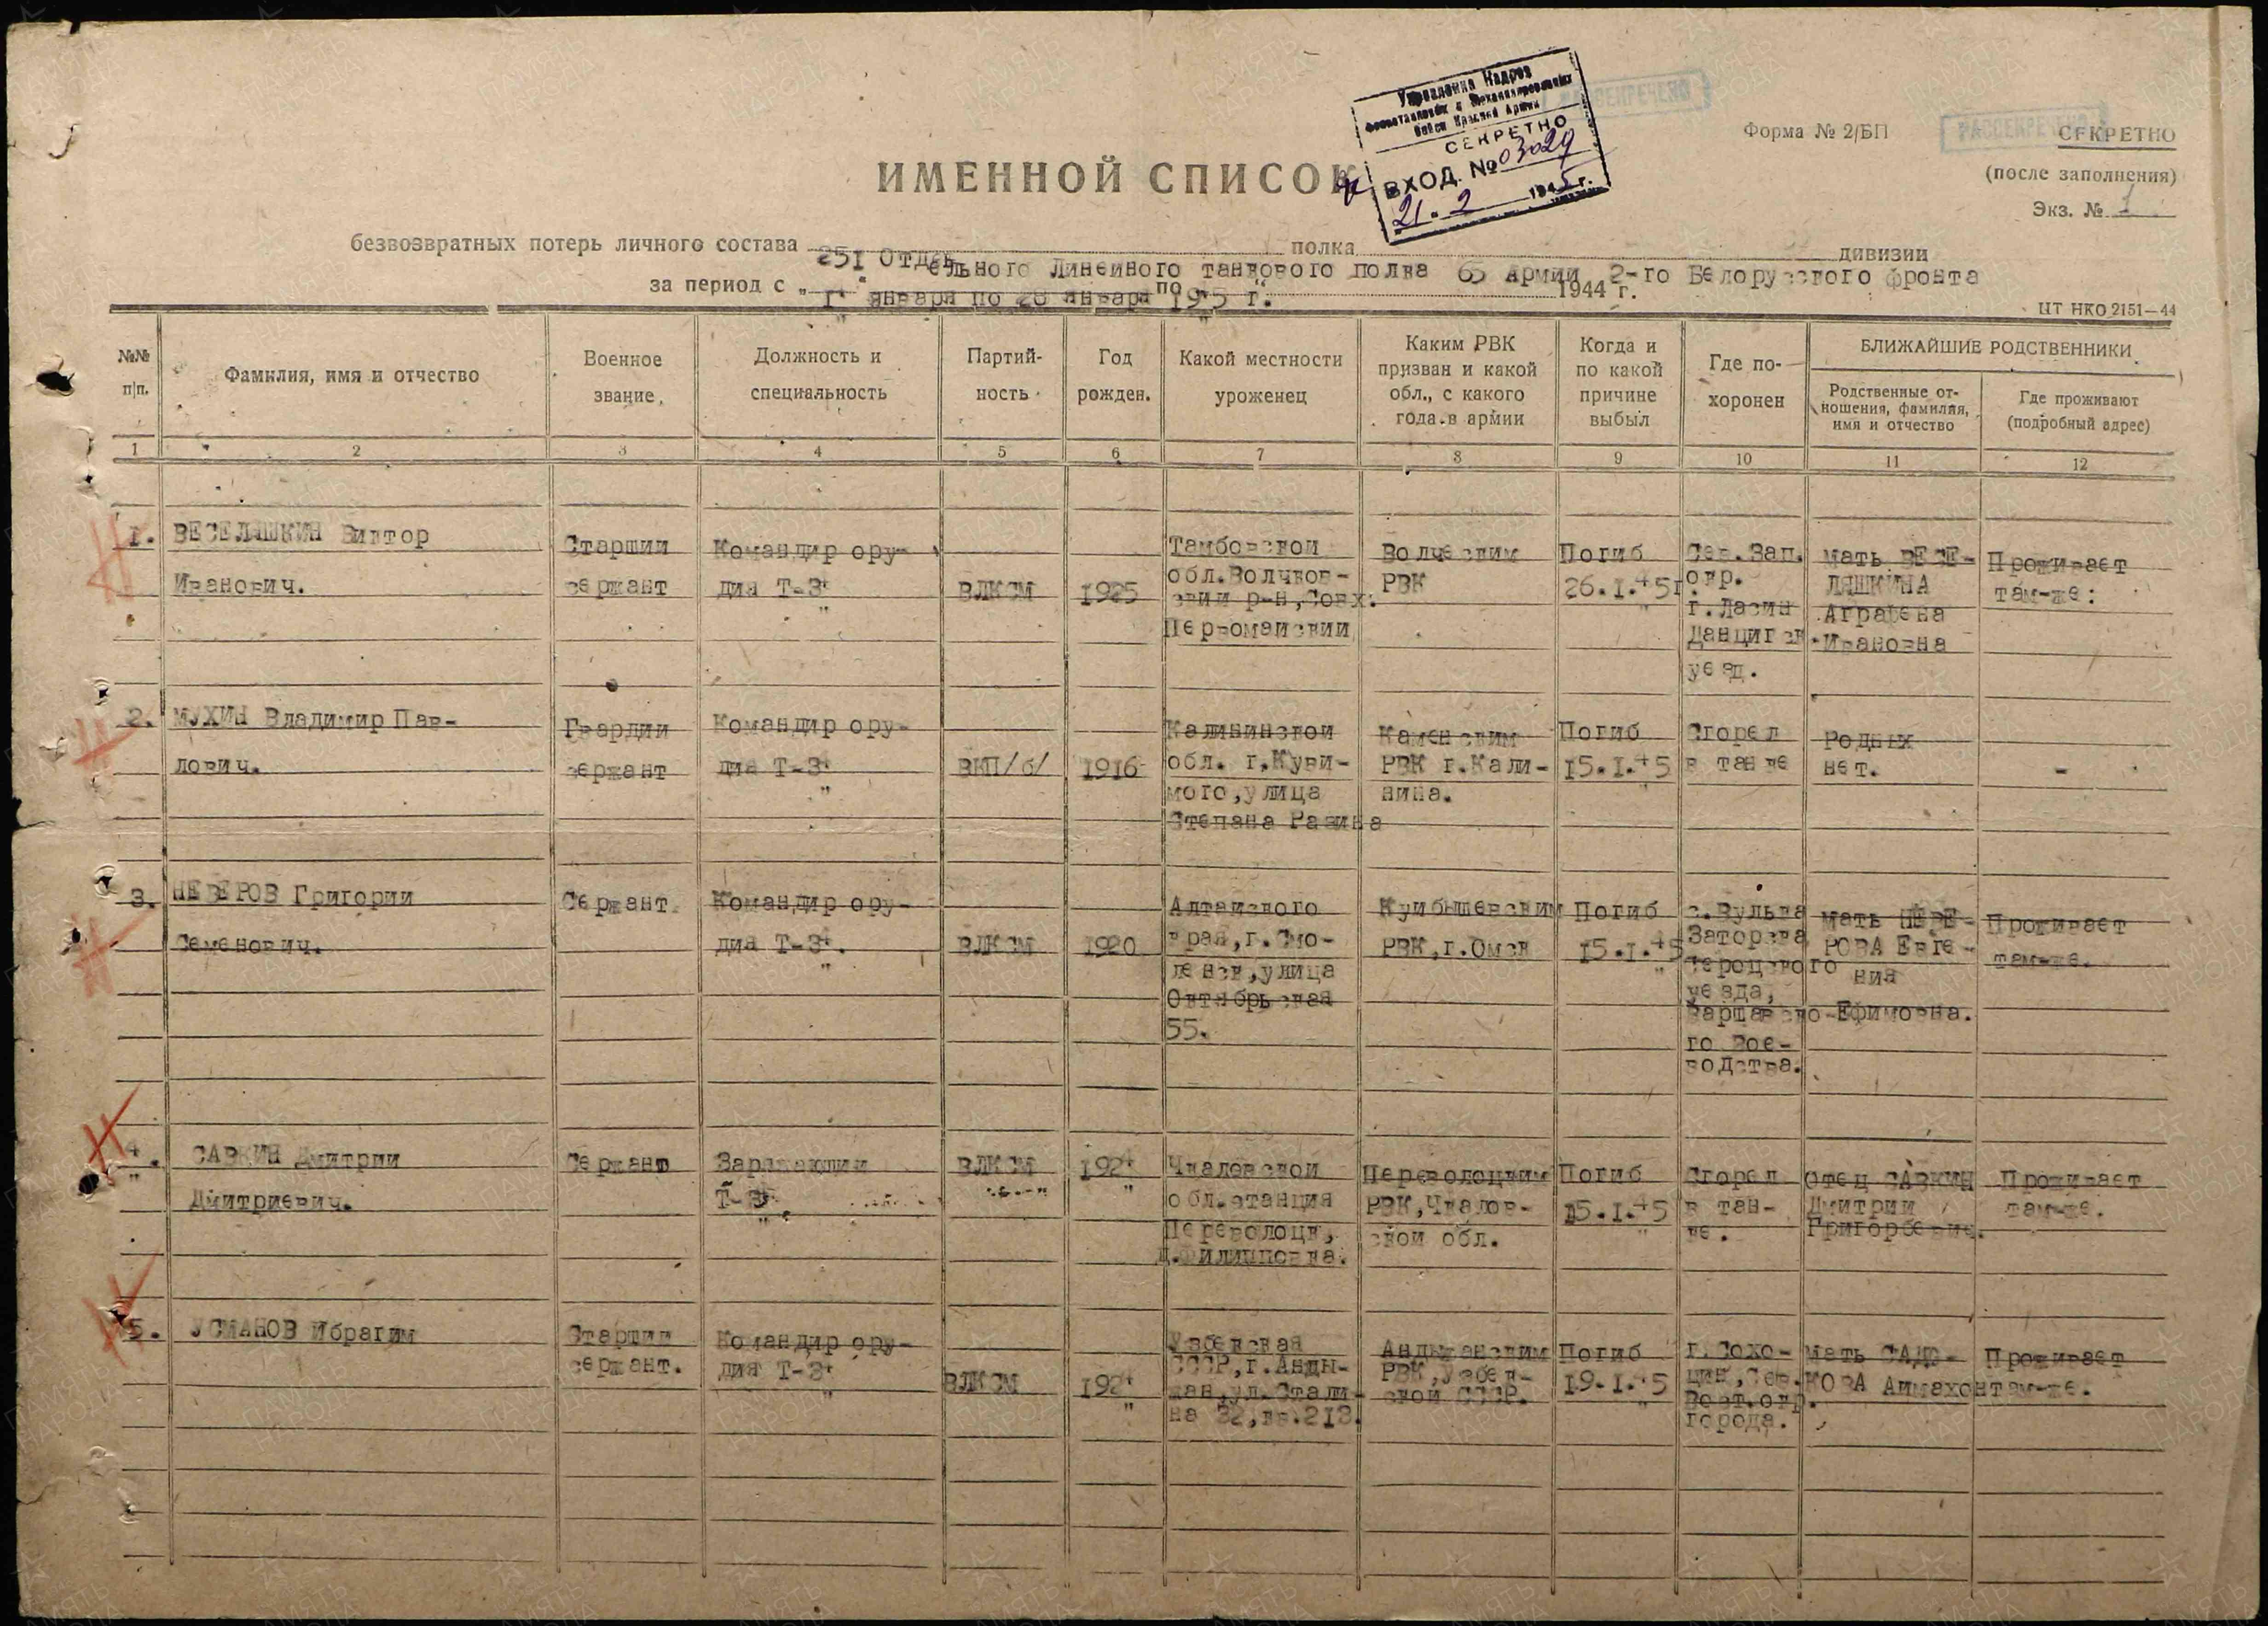 Управления Кадров
Бронетанковых и Механизированных
Войск Красной Армии
СЕКРЕТНО
ВХОД. № 03029
21. 2 1945 г.
РАССЕКРЕЧЕНО
Форма № 2/БП
РАССЕКРЕЧЕНО
СЕКРЕТНО
(после заполнения)
Экз. № 1
ИМЕННОЙ СПИСОК
безвозвратных потерь личного состава 251 Отдельного Линейного танкового полка 65 Армии 2-го Белорусского фронта полка дивизии
за период с " " по " " 1944 г.
января по 26 января 1945 г.
ЦТ НКО 2151—44
№№ п/п.
Фамилия, имя и отчество
Военное звание
Должность и специальность
Партий-ность
Год рожден.
Какой местности уроженец
Каким РВК призван и какой обл., с какого года в армии
Когда и по какой причине выбыл
Где по-хоронен
БЛИЖАЙШИЕ РОДСТВЕННИКИ
Родственные от-ношения, фамилия, имя и отчество
Где проживают (подробный адрес)
1 2 3 4 5 6 7 8 9 10 11 12
1. ВЕСЕЛЯШКИН Виктор
Иванович.
Старший
сержант
Командир ору-
дия Т-34
ВЛКСМ
1925
Тамбовской
обл.Волчков-
ский р-н,Совх.
Первомайский
Волчковским
РВК
Погиб
26.1.45г.
Сев.Зап.
окр.
г.Ласин
Данцигск.
уезд.
мать ВЕСЕ-
ЛЯШКИНА
Аграфена
Ивановна
Проживает
там-же:
2. МУХИН Владимир Пав-
лович.
Гвардии
сержант
Командир ору-
дия Т-34
ВКП/б/
1916
Калининской
обл. г.Куви-
мого,улица
Степана Разина
Каменским
РВК г.Кали-
нина.
Погиб
15.1.45
Сгорел
в танке
Родных
нет.
-
3. НЕВЕРОВ Григорий
Семенович.
Сержант
Командир ору-
дия Т-34.
ВЛКСМ
1920
Алтайского
края,г.Смо-
ленск,улица
Октябрьская
55.
Куйбышевским
РВК,г.Омск
Погиб
15.1.45
с.Вулька
Заторска
уезда,
Варшавско-
го Вое-
водства.
мать НЕВЕ-
РОВА Евге-
ния
Ефимовна.
Проживает
там-же.
4. САВКИН Дмитрий
Дмитриевич.
Сержант
Заряжающий
Т-34
ВЛКСМ
1924
Чкаловской
обл.станция
Переволоцк,
д.Филипповка.
Переволоцким
РВК,Чкалов-
ской обл.
Погиб
15.1.45
Сгорел
в тан-
ке.
Отец САВКИН
Дмитрий
Григорьевич.
Проживает
там-же.
5. УСМАНОВ Ибрагим
Старший
сержант.
Командир ору-
дия Т-34
ВЛКСМ
1924
Узбекская
СССР,г.Анды-
жан,ул.Стали-
на 32,кв.213.
Андыжанским
РВК,Узбек-
ской СССР.
Погиб
19.1.45
г.Сохо-
цин,Сев.
Вост.окр.
города.
мать САДЫ-
КОВА Аимахон
Проживает
там-же.